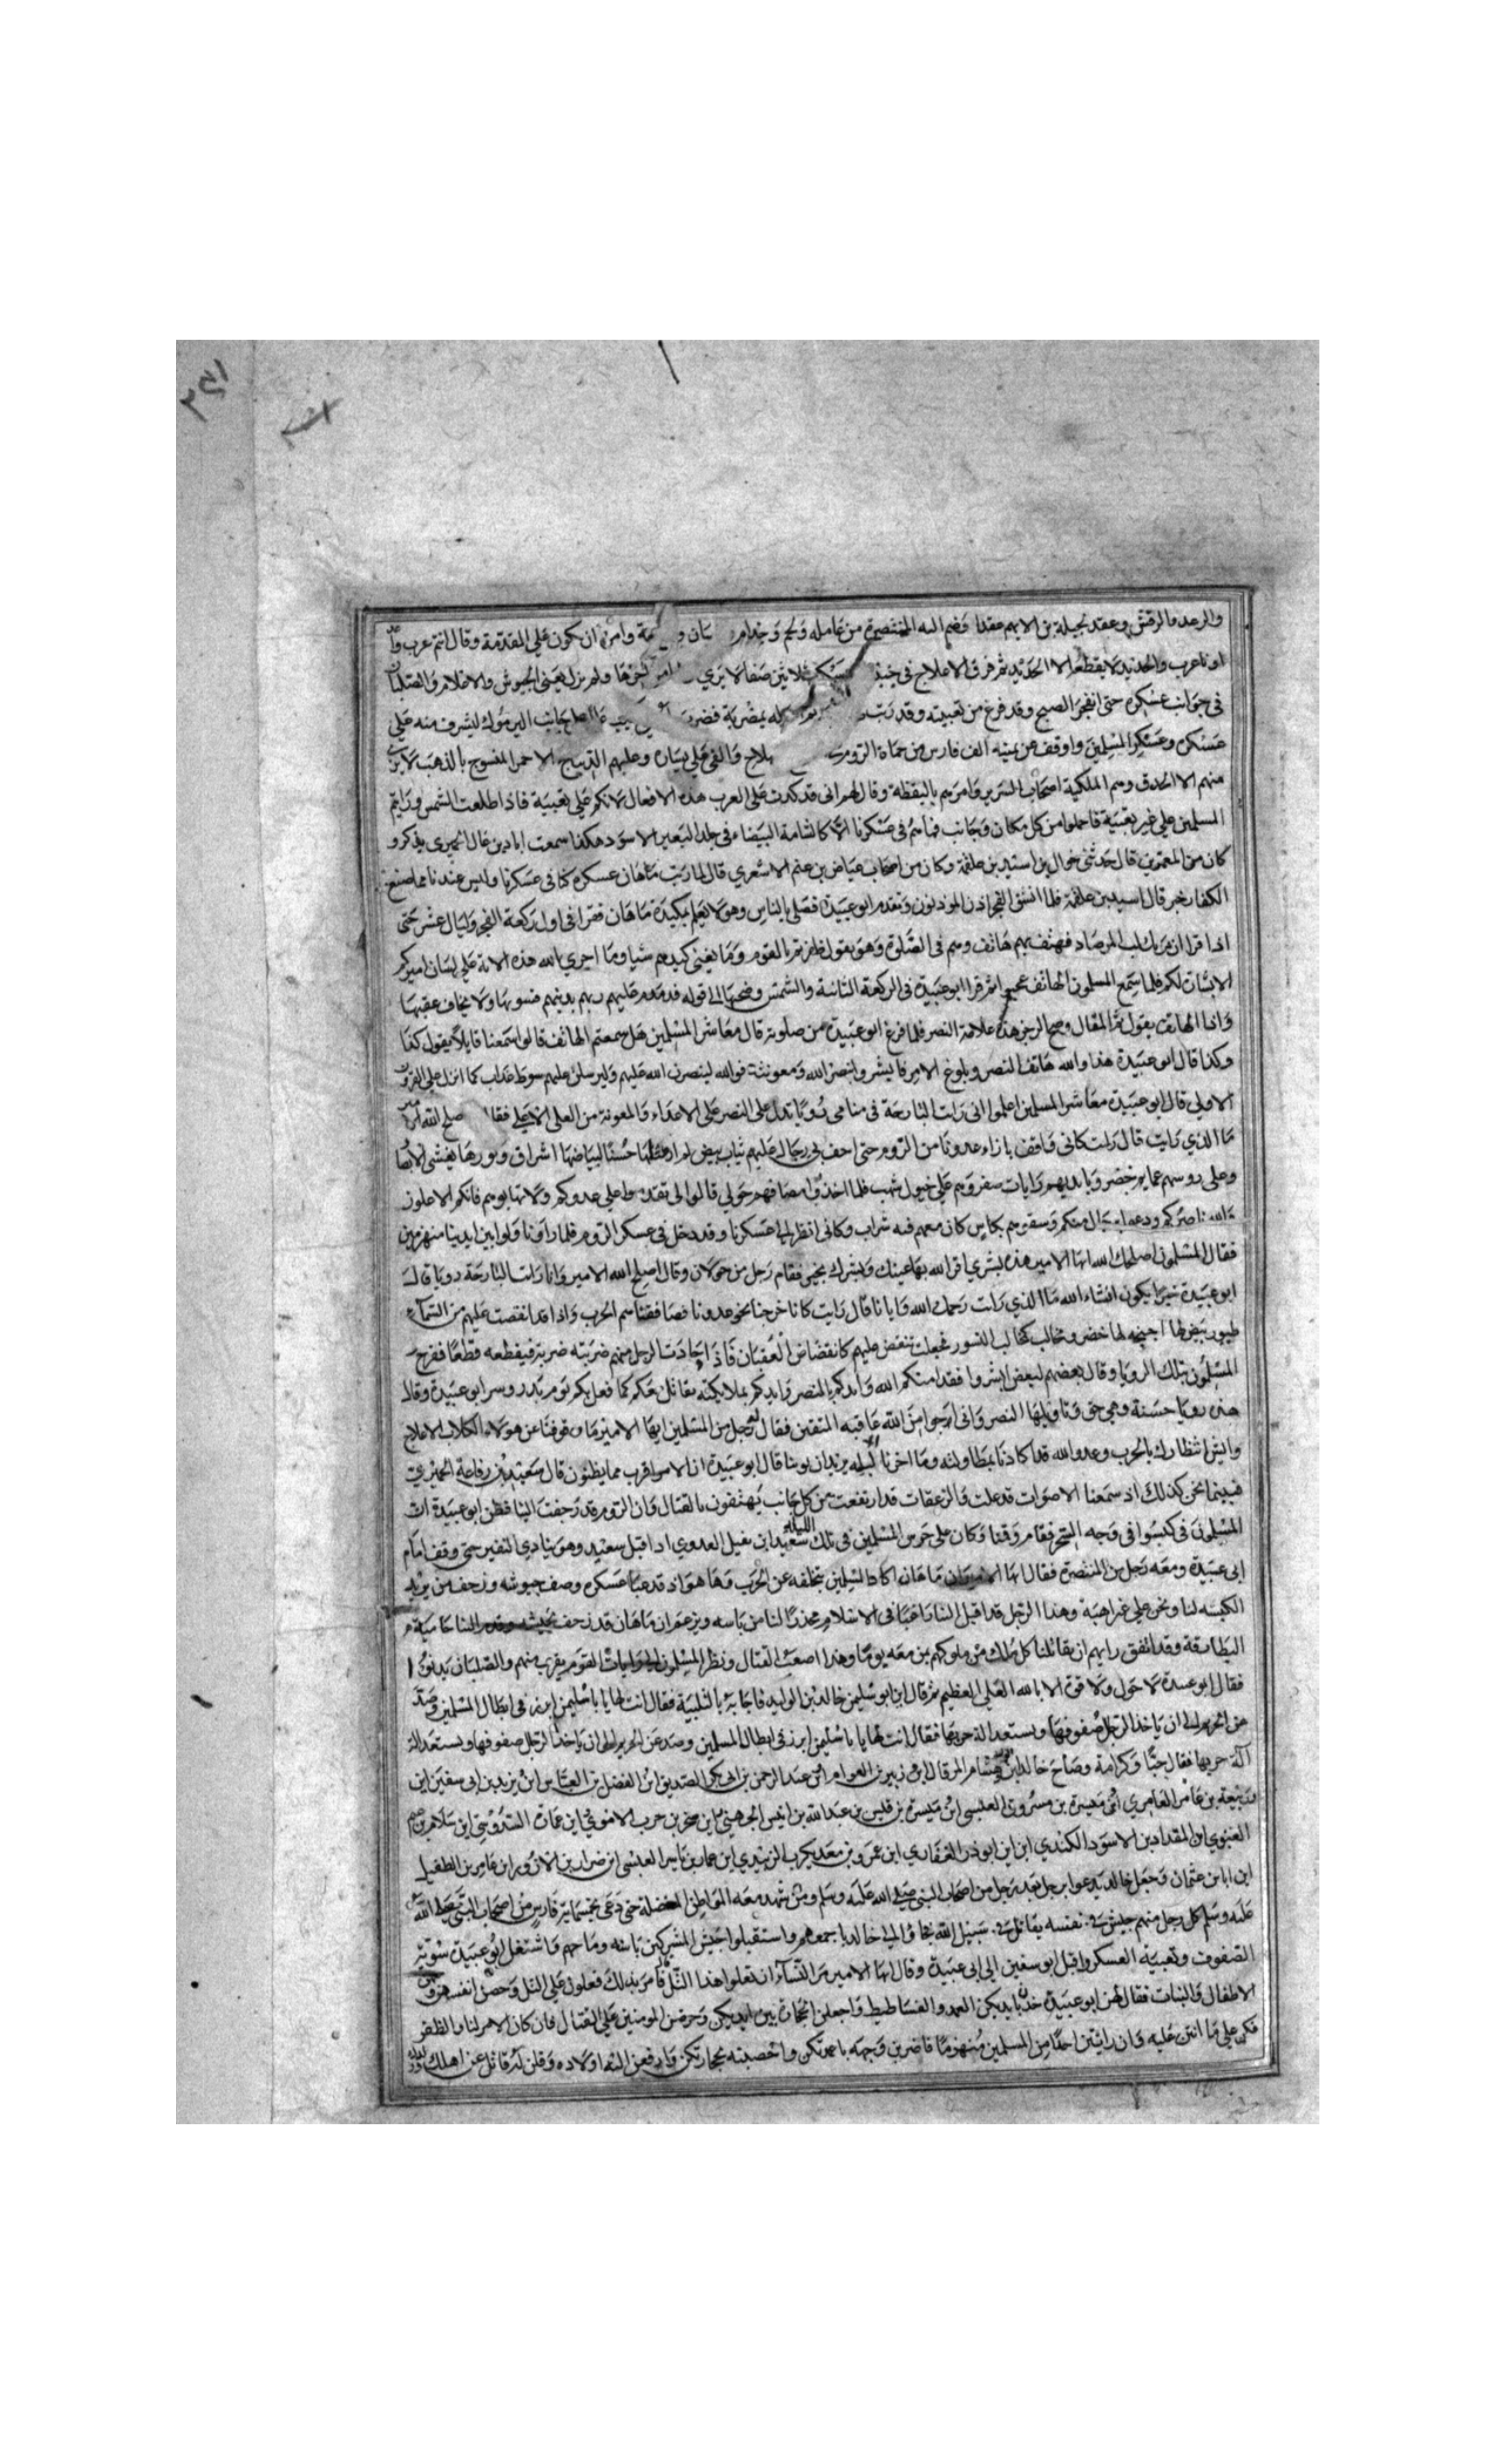 والرعد والرقش وعقد لجبلة بن الايهم عقدا وضم اليه المتنصرة من عامله ولخم وجذام وامره ان يكون على المقدمة وقال انتم عرب
اوناعرب والحديد لا يقطعه الا الحديد ثم فرق الاعلاج في ثلاثين صفا لا يري اخرها ولم يزل يعبي الجيوش والاعلام والصلبان
في جوانب عسكره حتى انفجر الصبح وقد فرغ من تعبيته وقد بمضربة جانب اليرموك ليشرف منه على
عسكره وعسكر المسلمين واوقف عن يمينه الف فارس من حماة الروم والف على يساره وعليهم الديباج الاحمر المنسوج بالذهب لا يري
منهم الا الحدق وهم الملكية اصحاب السرير وامرهم باليقظة وقال لهم انى قد كدت على العرب هذه الافعال لانكم على تعبية فاذا طلعت الشمس ورايتم
المسلمين على غير تعبية فاحملوا من كل مكان وجانب فما هم في عسكرنا الا كالشامة البيضاء في جلد البعير الاسود هكذا سمعت
كان من المعمرين قال حدثني بن علقمة وكان من اصحاب عياض بن غنم الاشعري قال لما رتب ماهان عسكره كنا في عسكرنا وليس عندنا مما صنع
الكفار خبر قال اسيد بن علقمة فلما انشق الفجر اذن الموذنون وتقدم ابو عبيدة فصلى بالناس وهو لا يعلم بمكيدة ماهان فقرا في اول ركعة الفجر وليال عشر حتى
اذا قرا ان ربك لبالمرصاد فهتف بهم هاتف وهم في الصلوة وهو يقول ظفرتم بالقوم وما يغني كيدهم شيا وما اجري الله هذه الاية على لسان اميركم
الا بشارة لكم فلما سمع المسلمون الهاتف عجبوا ثم قرا ابو عبيدة في الركعة الثانية والشمس وضحيها الى قوله فدمدم عليهم ربهم بذنبهم فسويها ولا يخاف عقبيها
واذا الهاتف يقول تم المقال وصح الزجر هذه علامة النصر فلما فرغ ابو عبيدة من صلوته قال معاشر المسلمين هل سمعتم الهاتف قالوا سمعنا قايلا يقول كذا
وكذا قال ابو عبيدة هذا والله هاتف النصر وبلوغ الامر فابشروا بنصر الله ومعونته فوالله لينصرن الله عليهم وليرسلن عليهم سوط عذاب كما انزل على القرون
الاولى قال ابو عبيدة معاشر المسلمين اعلموا انى رايت البارحة في منامي رويا تدل على النصر على الاعداء والمعونة من العلى الاعلى اصلح الله الامير
ما الذي رايت قال رايت كانى واقف بازاء عدونا من الروم حتى احف بي رجال عليهم ثياب بيض لم ار مثلها حسنا لبياضها اشراق ونورها يغشى الابصار
وعلى روسهم عمايم خضر وبايديهم رايات صفر وهم على خيول شهب فلما اخذوا مصافهم حولي قالوا لى تقدموا على عدوكم ولا تهابوهم فانكم الاعلون
والله ناصركم ودعوا برجال منكم وسقوهم بكاس كان معهم فيه شراب وكانى انظر الى عسكرنا وقد دخل في عسكر الروم فلما راونا ولوا بين ايدينا منهزمين
فقال المسلمون اصلحك الله ايها الامير هذه بشري اقر الله بها عينك وبشرك بخير فقام رجل من خولان وقال اصلح الله الامير وانا رايت البارحة رويا قال
ابو عبيدة خيرا يكون انشاء الله ما الذي رايت رحمك الله قال رايت كانا خرجنا نحو عدونا فصافقناهم الحرب واذا قد انقضت عليهم من السماء
طيور بيض لها اجنحه لها خضر ومخالب كمخالب النسور فجعلت تنقض عليهم كانقضاض العقبان فاذا حادت الرجل منهم ضربته ضربة فيقطعه قطعا ففرح
المسلمون بتلك الرويا وقال بعضهم لبعض ابشروا فقد امنكم الله وايدكم بالنصر وايدكم بملايكته يقاتل معكم كما فعل بكم يوم بدر وسر ابو عبيدة وقال
هذه رويا حسنة وهي حق وتاويلها النصر وانى ارجوا من الله عاقبه المتقين فقال رجل من المسلمين ايها الامير ما وقوفنا عن هولاء الكلاب الاعلاج
وايش انتظارك بالحرب وعدو الله قد كادنا بمطاولته وما اخرنا الا لبليه يريدان يوبنا قال ابو عبيدة ان الامر اقرب مما يظنون قال سعيد بن رفاعة الحميري
فبينما نحن كذلك اذ سمعنا الاصوات قد علت والزعقات قد ارتفعت من كل جانب يهتفون بالقتال وان الروم قد زحفت الينا فظن ابو عبيدة ان
المسلمون في كبسوا في وجه السحر فقام وقفا وكان على حرس المسلمين في تلك الليلة سعيد ابن نفيل العدوي اذا قبل سعيد وهو ينادي النفير حتى وقف امام
ابي عبيدة ومعه رجل من المتنصرة فقال ايها الامير ان ماهان اكاد المسلمين بتخلفه عن الحرب وها هو اذ قد عبا عسكره وصف جيوشه وزحف من يريد
الكبسه لنا ونحن على غير اهبة وهذا الرجل قد اقبل الينا راغبا في الاسلام محذرا لنا من باسه ويزعم ان ماهان قد زحف الينا حامية
البطارقة وقد اتفق رايهم ان يقاتلنا كل ملك من ملوكهم بمن معه يوما وهذا اصعب القتال ونظر المسلمون رايات القوم يقرب منهم والصلبان يدنوا
فقال ابو عبيدة لا حول ولا قوة الا بالله العلى العظيم ثم قال اين ابو سليمن خالد بن الوليد فاجابه بالتلبية فقال انت لها يا ابا سليمن ابرز في ابطال المسلمين وصد
عن الحريم الى ان ياخذ الرجل صفوفها ويستعد الة حربها فقال انت لها يا با سليمن ابرز في ابطال المسلمين وصد عن الحريم الى ان ياخذ الرجل صفوفها ويستعد الة
الة حربها فقال حبا وكرامة وصاح خالد اين هشام المرقال اين زبير بن العوام اين عبد الرحمن بن ابي بكر الصديق اين الفضل بن العباس اين يزيد بن ابي سفين اين
ربيعة بن عامر العامري اين ميسرة بن مسروق العبسي اين ميسرة بن قيس بن عبد الله بن انيس الجهني اين صخر بن حرب الاموي اين السدوسي اين سلامه بن
الغنوي اين المقداد بن الاسود الكندي اين ابو ذر الغفاري اين عمرو بن معديكرب الزبيدي اين عمار بن ياسر العبسي اين ضرار بن الازور اين عامر بن الطفيل
اين ابان بن عثمان وجعل خالد يدعوا برجل بعد رجل من اصحاب النبي صلى الله عليه وسلم ومن شهد معه المواطن حتى دعى بخمسماية فارس من اصحاب النبي صلى الله
عليه وسلم كل رجل منهم جيش في نفسه يقاتل في سبيل الله فجاؤا الى خالد باجمعهم واستقبلوا جيش المشركين باسنه ورماحهم واشتغل ابو عبيدة بتسوية
الصفوف وتعبية العسكر واقبل ابو سفين الى ابي عبيدة وقال ايها الامير مر النساء ان تعلوا هذا التل فامر بذلك فعلون على التل وحصن انفسهن
الاطفال والبنات فقال لهن ابو عبيدة خذن بايديكن العمد والفساطيط واجعلن الحجارة بين ايديكن وحرضن المومنين على القتال فان كان الامر لنا والظفر
فكن على ما انتن عليه وان رايتن احدا من المسلمين منهزما فاضربن وجهه باعمدتكن واحصبنه بحجارتكن وارفعن اليه اولاده وقلن له قاتل عن اهلك